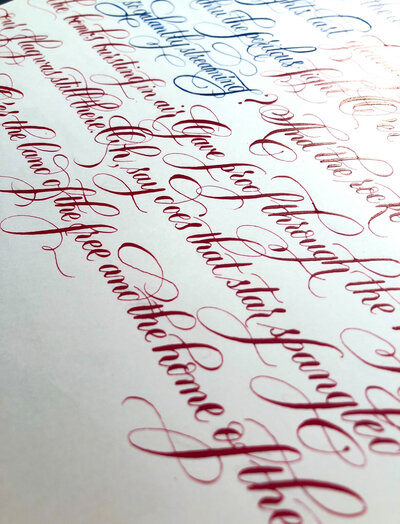 last
the perilous fight O'er
gallantly streaming? And the
bombs bursting in air Gave proof through the
flag was still there. Oh, say does that star spangled
O'er the land of the free and the home of the